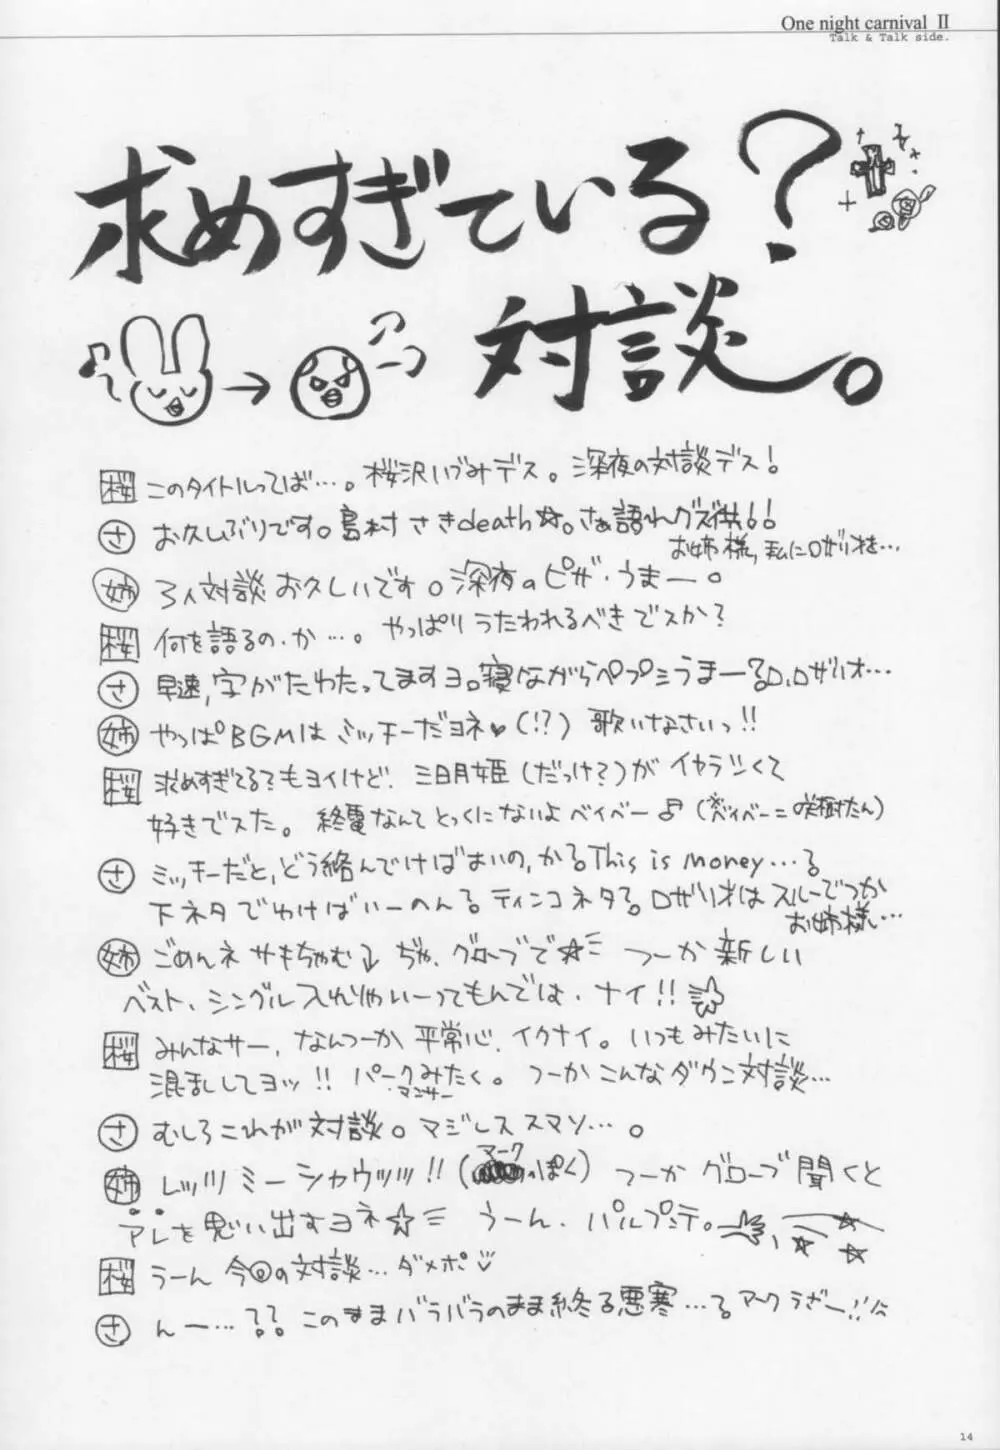 One night carnival II
Talk & Talk side.
求めすぎている?
対談。
桜 このタイトルってば…。桜沢いづみデス。深夜の対談デス!
さ お久しぶりです。島村さきdeath☆。さぁ語れグズ供!!
お姉様,私にロザリオを…
姉 3人対談お久しいです。深夜のピザ・うまー。
桜 何を語るの・か…。やっぱりうたわれるべきでスか?
さ 早速,字がたわたってますヨ。寝ながらペプシうまー?ロ、ロザリオ…
姉 やっぱBGMはミッチーだヨネ♥(!?) 歌いなさいっ!!
桜 求めすぎてる?もヨイけど、三日月姫(だっけ?)がイヤラシくて
好きでスた。終電なんてとっくにないよベイベー♪(※ベイベー=咲樹たん)
さ ミッチーだと,どう絡んでけばよいの,かるThis is money…る
下ネタでいけばいーのんる。ティンコネタる。ロザリオはスルーでつか
お姉様…
姉 ごめんネ サキちゃむ↓ ぢゃ、グローブで☆ つーか新しい
ベスト、シングル入れじゃいーってもんでは・ナイ!!
桜 みんなサー、なんつーか平常心、イクナイ。いつもみたいに
混乱してヨッ!! パークみたく。つーかこんなダウン対談…
マンサー
さ むしろこれが対談。マジレススマソ…。
姉 レッツミーシャウッッ!!(っぽく) つーかグローブ聞くと
マーク
アレを思い出すヨネ☆ うーん、パルプンテ。
桜 うーん 今回の対談…ダメポ
さ んー…?? このままバラバラのまま終る悪寒…る マークらざー!!
14